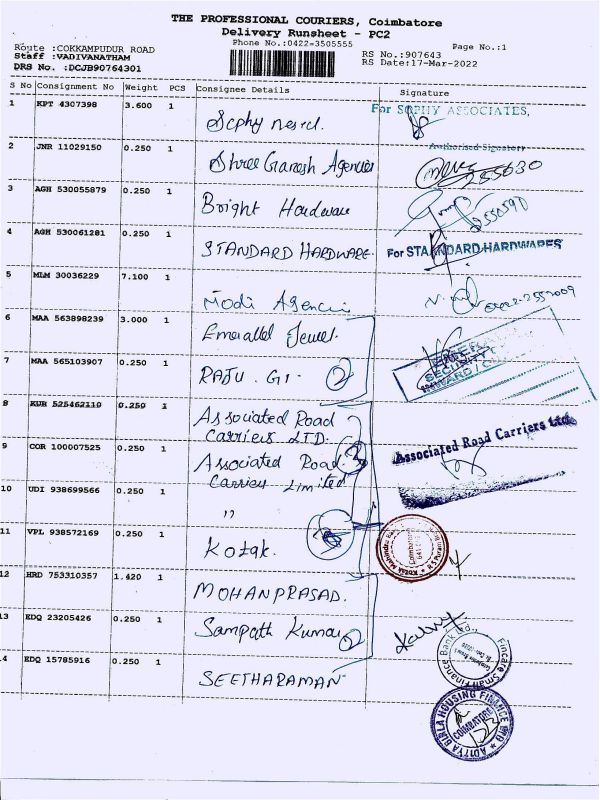 THE PROFESSIONAL COURIERS, Coimbatore
Delivery Runsheet - PC2
Phone No.:0422-3505555
Page No.:1
Route :COKKAMPUDUR ROAD
Staff :VADIVANATHAM
DRS No. :DCJB90764301
RS No.:907643
RS Date:17-Mar-2022
S No Consignment No Weight PCS Consignee Details Signature
1 KPT 4307398 3.600 1
For SOPHY ASSOCIATES,
Authorised Signatory
2 JNR 11029150 0.250 1 Shree Ganesh Agencies
255630
3 AGH 530055879 0.250 1 Bright Hardware
4 AGH 530061281 0.250 1 STANDARD HARDWARE
For STANDARD HARDWARES
5 MLM 30036229 7.100 1 Modi Agencies
6 MAA 563898239 3.000 1 Emerald Jewel.
SECURITY
INWARD
7 MAA 565103907 0.250 1 RAJU . G 2
8 KUB 525462110 0.250 1 Associated Road
Carriers LTD.
9 COR 100007525 0.250 1 Associated Road
Carriers Limited
Associated Road Carriers Ltd.
10 UDI 938699566 0.250 1 "
11 VPL 938572169 0.250 1 Kotak
Kotak Mahindra
Coimbatore
12 HRD 753310357 1.420 1 MOHANPRASAD.
13 EDQ 23205426 0.250 1 Sampath Kumar 2
Fincare Small Finance Bank Ltd.
14 EDQ 15785916 0.250 1 SEETHARAMAN
ADITYA BIRLA HOUSING FINANCE LTD
COIMBATORE